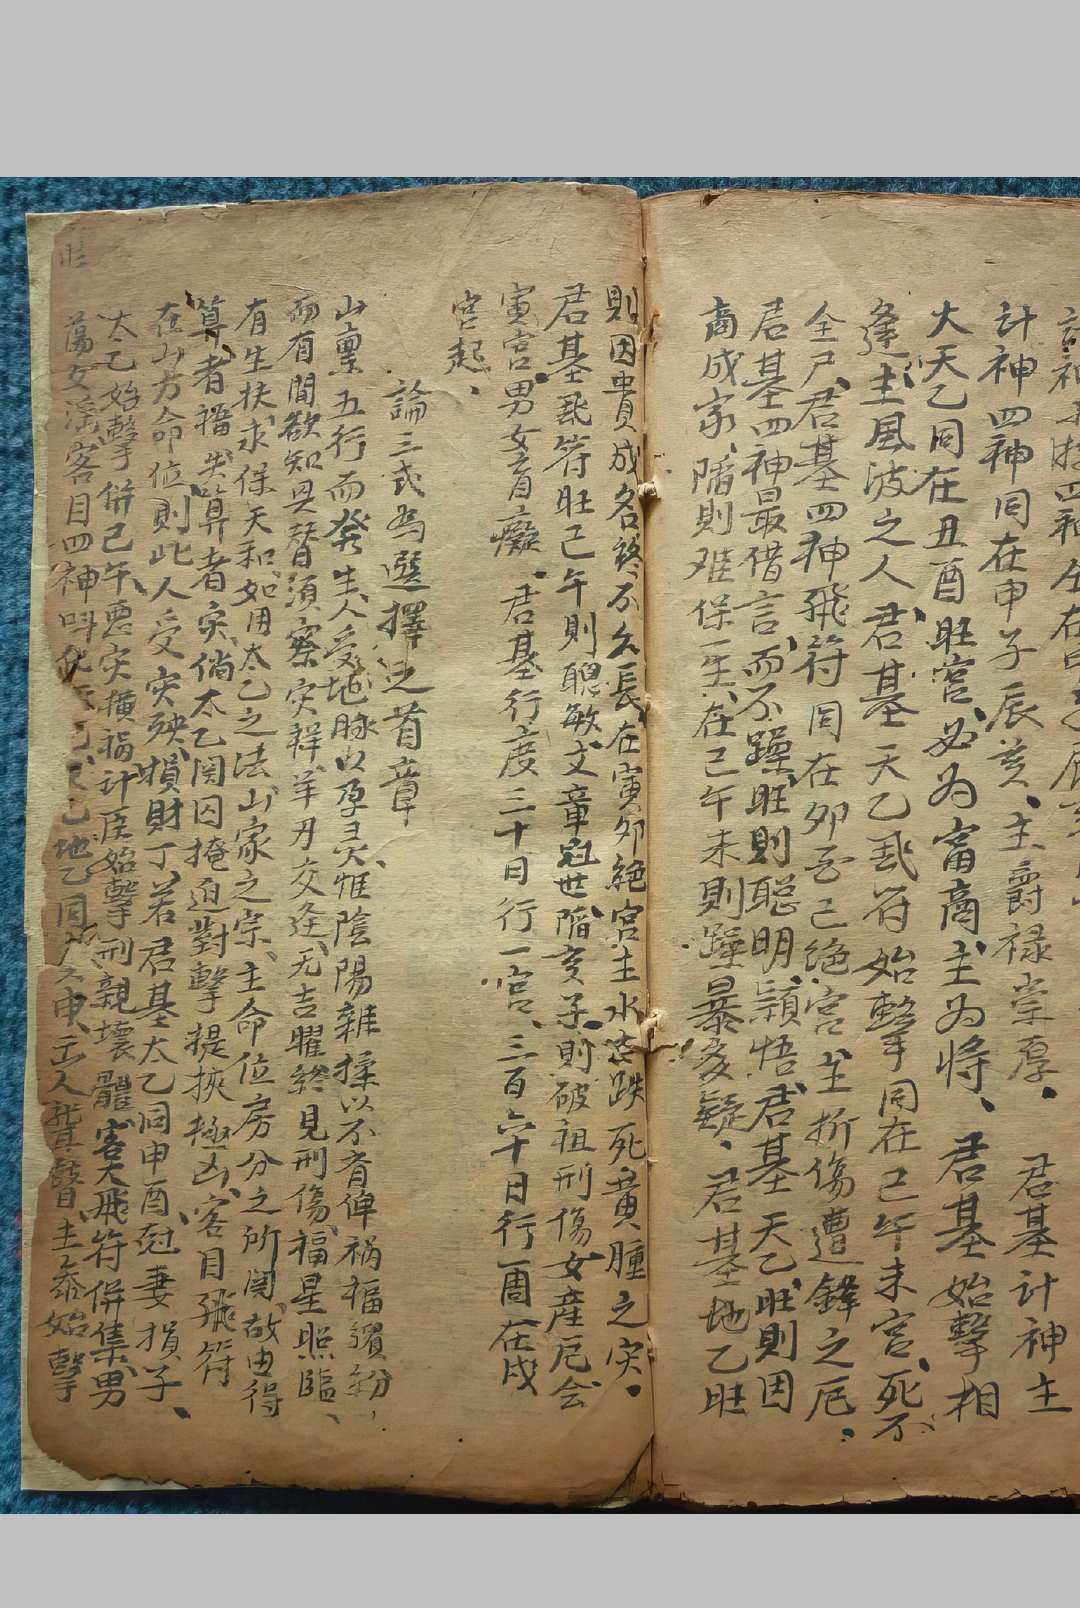 計神四神同在申子辰亥、主爵禄崇厚、君基計神主
大天乙同在丑酉旺宮、必为富商、主为將、君基始擊相
逢主風波之人、君基天乙飛符始擊同在己午未宮、死不
全尸、君基四神飛符同在卯至己绝宮主折傷遭鋒之厄、
君基四神最借言、而不躁、旺則聪明、頴悟、君基天乙旺則因
商成家、陷則难保一生、在己午未則躁暴多疑、君基地乙旺
則因貴成名終不久長、在寅卯絕宮主水古跌死黄腫之灾、
君基飛符旺己午則聰敏文章冠世陷亥子、則破祖刑傷女産厄会
寅宮男女盲癡、君基行度三十日行一宮、三百六十日行一周在戌
宮起、
論三式为選擇之首章
山稟五行而發生、人受地脉以孕灵、惟陰陽雜揉以不育俾祸福繽紛
而有間欲知具替須察灾祥羊刃交逢、无吉曜終見刑傷、福星照臨、
有生扶、求保天和、如用太乙之法、山家之宗、主命位房分之所関、故由得
算者福、失算者灾、倘太乙関囚掩迫對擊提挾極凶、客目飛符
在山方命位則此人受灾殃、損財丁、若君基太乙同申酉尅妻損子、
太乙始擊併己午、悪灾横禍計臣始擊刑親壞體、客大飛符併集男
蕩女滛、客目四神 地乙同 申击人聾瞽、主叅始擊